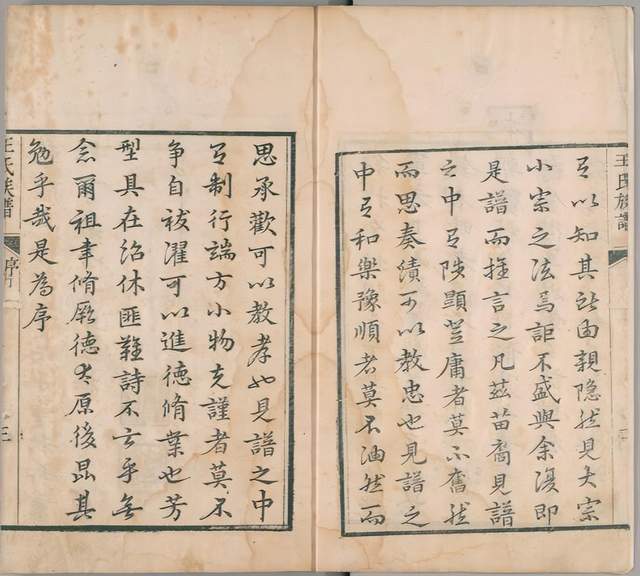 王氏族譜
有以知其所由親隐然見大宗
小宗之法焉詎不盛與余復即
是譜而推言之凡茲苗裔見譜
之中有陟顯登庸者莫不奮然
而思奏績可以教忠也見譜之
中有和樂豫順者莫不油然而
思承歡可以教孝也見譜之中
有制行端方小物克謹者莫不
争自祓濯可以進德脩業也芳
型具在詒休匪難詩不云乎無
念爾祖聿脩厥德太原後昆其
勉乎哉是為序
王氏族譜
序
三